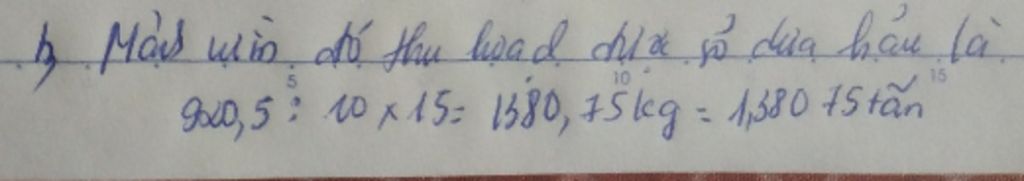 b, Mảnh vườn đó thu hoạch được số dưa hấu là
920,5 : 10 x 15 = 1380,75kg = 1,38075 tấn